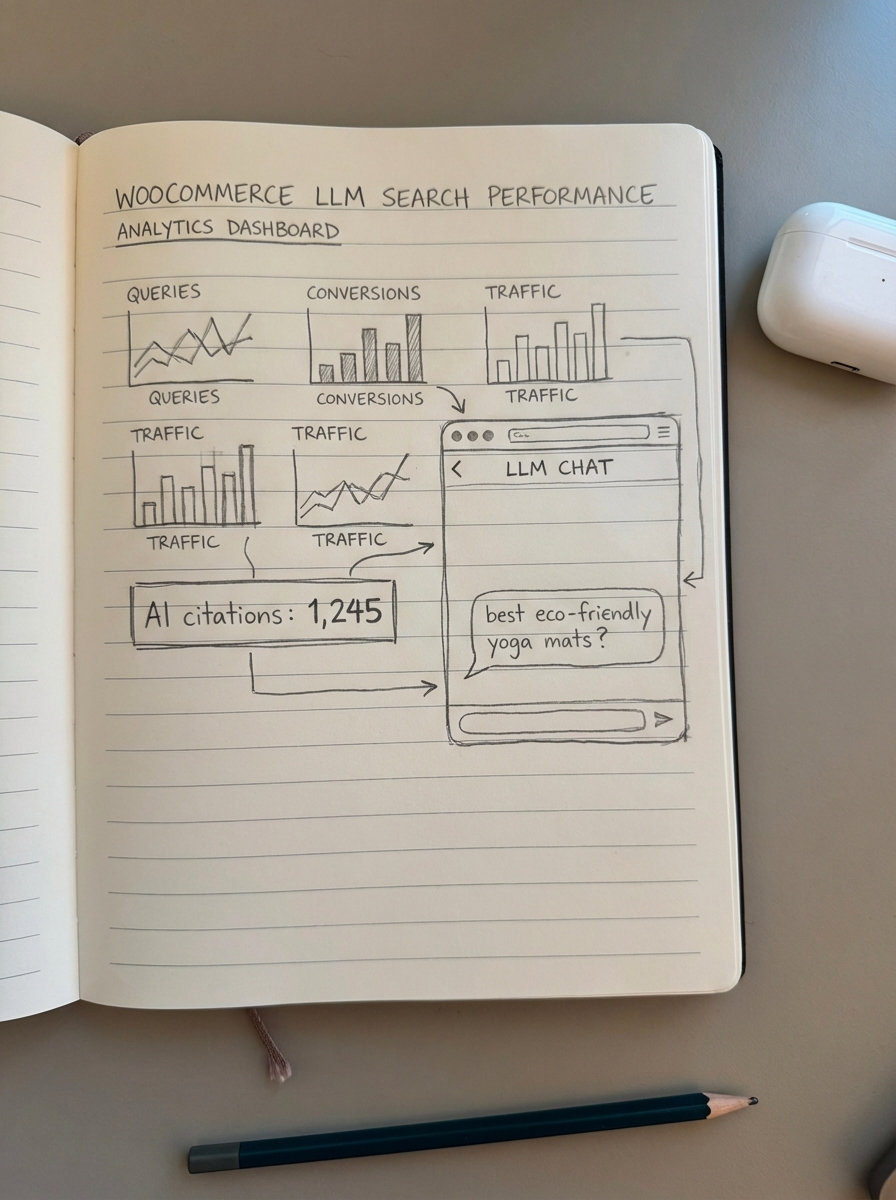 WOOCOMMERCE LLM SEARCH PERFORMANCE
ANALYTICS DASHBOARD
QUERIES
CONVERSIONS
TRAFFIC
QUERIES
CONVERSIONS
TRAFFIC
TRAFFIC
TRAFFIC
TRAFFIC
TRAFFIC
LLM CHAT
AI citations: 1,245
best eco-friendly
yoga mats?